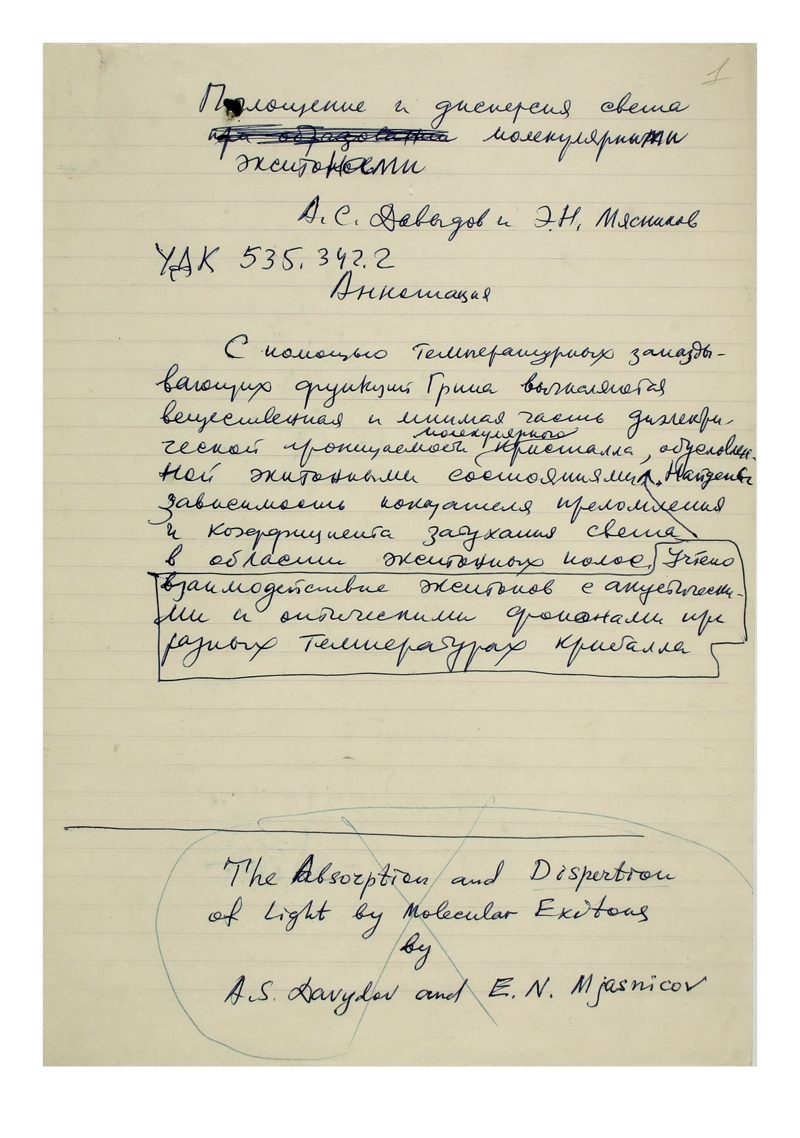 1
Поглощение и дисперсия света
при образовании молекулярными
экситонами
А.С. Давыдов и Э.Н. Мясников
УДК 535.342.2
Аннотация
С помощью температурных запазды-
вающих функций Грина вычисляются
вещественная и мнимая часть диэлектри-
молекулярного
ческой проницаемости кристалла, обусловлен-
ной экситонными состояниями. Найдены
зависимость показателя преломления
и коэффициента затухания света
в области экситонных полос. Учтено
взаимодействие экситонов с акустически-
ми и оптическими фононами при
разных температурах кристалла
The Absorption and Dispertion
of Light by Molecular Exitons
by
A.S. Davydov and E. N. Mjasnicov